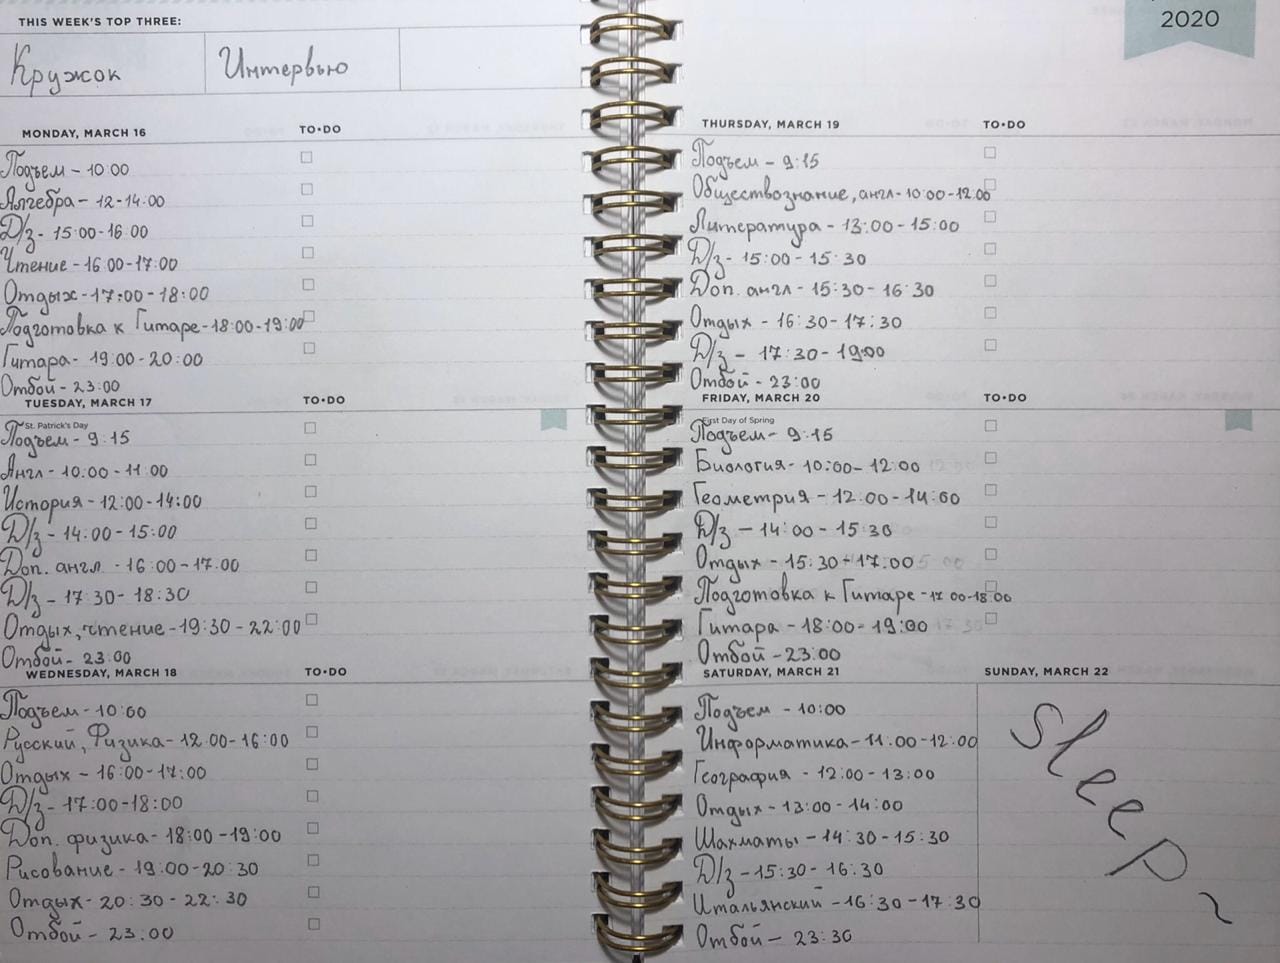 THIS WEEK'S TOP THREE:
Кружок
Интервью
2020
MONDAY, MARCH 16
TO•DO
Подъем - 10:00
Алгебра - 12-14:00
Д/з - 15:00-16:00
Чтение - 16:00-17:00
Отдых - 17:00 - 18:00
Подготовка к Гитаре - 18:00 - 19:00
Гитара - 19:00 - 20:00
Отбой - 23:00
TUESDAY, MARCH 17
TO•DO
St. Patrick's Day
Подъем - 9:15
Англ - 10:00 - 11:00
История - 12:00 - 14:00
Д/з - 14:00 - 15:00
Доп. англ. - 16:00 - 17:00
Д/з - 17:30 - 18:30
Отдых, чтение - 19:30 - 22:00
Отбой - 23:00
WEDNESDAY, MARCH 18
TO•DO
Подъем - 10:00
Русский, Физика - 12:00 - 16:00
Отдых - 16:00 - 17:00
Д/з - 17:00 - 18:00
Доп. физика - 18:00 - 19:00
Рисование - 19:00 - 20:30
Отдых - 20:30 - 22:30
Отбой - 23:00
THURSDAY, MARCH 19
TO•DO
Подъем - 9:15
Обществознание, англ - 10:00 - 12:00
Литература - 13:00 - 15:00
Д/з - 15:00 - 15:30
Доп. англ - 15:30 - 16:30
Отдых - 16:30 - 17:30
Д/з - 17:30 - 19:00
Отбой - 23:00
FRIDAY, MARCH 20
TO•DO
First Day of Spring
Подъем - 9:15
Биология - 10:00 - 12:00
Геометрия - 12:00 - 14:00
Д/з - 14:00 - 15:30
Отдых - 15:30 - 17:00
Подготовка к Гитаре - 17:00 - 18:00
Гитара - 18:00 - 19:00
Отбой - 23:00
SATURDAY, MARCH 21
Подъем - 10:00
Информатика - 11:00 - 12:00
География - 12:00 - 13:00
Отдых - 13:00 - 14:00
Шахматы - 14:30 - 15:30
Д/з - 15:30 - 16:30
Итальянский - 16:30 - 17:30
Отбой - 23:30
SUNDAY, MARCH 22
Sleep